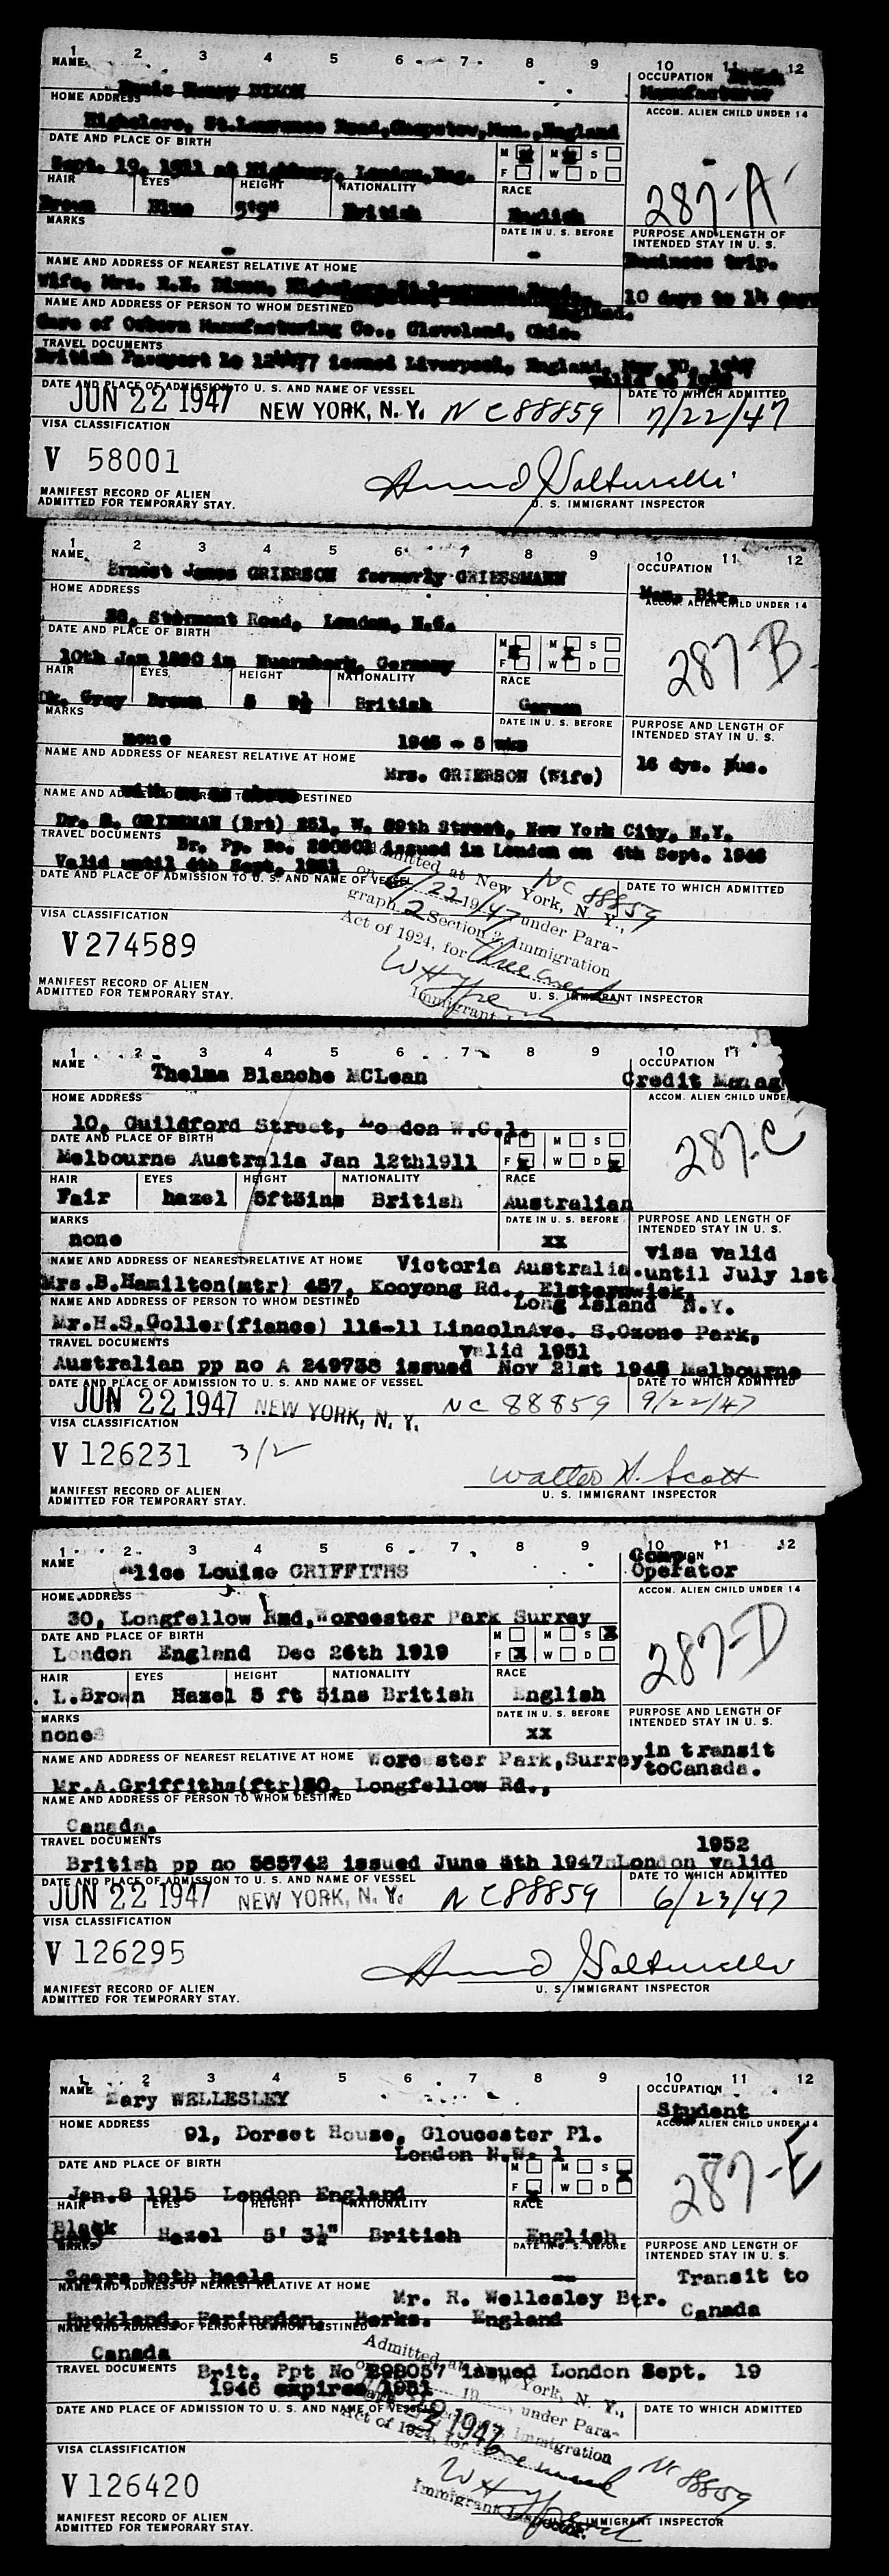 1 2 3 4 5 6 7 8 9 10 11 12
NAME OCCUPATION
Henry DIXON Manufacturer
HOME ADDRESS ACCOM. ALIEN CHILD UNDER 14
St.Lawrence Road, Chepstow, Mon., England
DATE AND PLACE OF BIRTH M M S
Sept. 19, 1911 at Highbury, London, Eng. F W D
287-A
HAIR EYES HEIGHT NATIONALITY RACE
Brown Blue 5'9" British English
MARKS DATE IN U. S. BEFORE PURPOSE AND LENGTH OF INTENDED STAY IN U. S.
- - Business trip.
NAME AND ADDRESS OF NEAREST RELATIVE AT HOME
Wife, Mrs. Dixon, 10 days to 14 days
England.
NAME AND ADDRESS OF PERSON TO WHOM DESTINED
Care of Osborn Manufacturing Co., Cleveland, Ohio.
TRAVEL DOCUMENTS
British Passport issued Liverpool, England, 1947
valid to
DATE AND PLACE OF ADMISSION TO U. S. AND NAME OF VESSEL DATE TO WHICH ADMITTED
JUN 22 1947 NEW YORK, N. Y. NC 88859 7/22/47
VISA CLASSIFICATION
V 58001
MANIFEST RECORD OF ALIEN
ADMITTED FOR TEMPORARY STAY. U. S. IMMIGRANT INSPECTOR
1 2 3 4 5 6 7 8 9 10 11 12
NAME OCCUPATION
Ernest James GRIERSON formerly GRIESSMANN Man. Dir.
HOME ADDRESS ACCOM. ALIEN CHILD UNDER 14
Road, London, N.6.
DATE AND PLACE OF BIRTH M M S
10th Jan 1890 in Nuernberg, Germany F W D
287-B
HAIR EYES HEIGHT NATIONALITY RACE
Dk. Grey Brown 5 9½ British German
MARKS DATE IN U. S. BEFORE PURPOSE AND LENGTH OF INTENDED STAY IN U. S.
none 1946 - 5 wks
NAME AND ADDRESS OF NEAREST RELATIVE AT HOME
Mrs. GRIERSON (Wife) 16 dys. Bus.
NAME AND ADDRESS OF PERSON TO WHOM DESTINED
Dr. 251, W. 89th Street, New York City, N.Y.
TRAVEL DOCUMENTS
Br. Pp. No. issued in London on 4th Sept. 1946
Valid until 4th Sept. 1951
DATE AND PLACE OF ADMISSION TO U. S. AND NAME OF VESSEL DATE TO WHICH ADMITTED
Admitted at New York, N. Y., NC 88859
on 6/22 1947 under Para-
graph 2 Section 3, Immigration
Act of 1924, for three
VISA CLASSIFICATION
V 274589
MANIFEST RECORD OF ALIEN
ADMITTED FOR TEMPORARY STAY. U. S. IMMIGRANT INSPECTOR
1 2 3 4 5 6 7 8 9 10 11
NAME OCCUPATION
Thelma Blanche MCLean Credit Manag
HOME ADDRESS ACCOM. ALIEN CHILD UNDE
10, Guildford Street, London W.C.1.
DATE AND PLACE OF BIRTH M M S
Melbourne Australia Jan 12th1911 F W D
287-C
HAIR EYES HEIGHT NATIONALITY RACE
Fair hazel 5ft5ins British Australian
MARKS DATE IN U. S. BEFORE PURPOSE AND LENGTH OF INTENDED STAY IN U. S.
none xx visa valid
NAME AND ADDRESS OF NEAREST RELATIVE AT HOME Victoria Australia. until July 1st
Mrs.B.Hamilton(mtr) 457, Kooyong Rd., Elsternwick,
NAME AND ADDRESS OF PERSON TO WHOM DESTINED Long Island N.Y.
Mr.H.S.Coller(fiance) 116-11 LincolnAve. S.Ozone Park,
TRAVEL DOCUMENTS valid 1951
Australian pp no A 249738 issued Nov 21st 1946 Melbourne
DATE AND PLACE OF ADMISSION TO U. S. AND NAME OF VESSEL DATE TO WHICH ADMITTED
JUN 22 1947 NEW YORK, N. Y. NC 88859 9/22/47
VISA CLASSIFICATION
V 126231 3/2
Walter H. Scott
MANIFEST RECORD OF ALIEN
ADMITTED FOR TEMPORARY STAY. U. S. IMMIGRANT INSPECTOR
1 2 3 4 5 6 7 8 9 10 11 12
NAME Comp.
Alice Louise GRIFFITHS Operator
HOME ADDRESS ACCOM. ALIEN CHILD UNDER 14
30, Longfellow Rd, Worcester Park Surrey
DATE AND PLACE OF BIRTH M M S
London England Dec 26th 1919 F W D
287-D
HAIR EYES HEIGHT NATIONALITY RACE
L.Brown Hazel 5 ft 5ins British English
MARKS DATE IN U. S. BEFORE PURPOSE AND LENGTH OF INTENDED STAY IN U. S.
none xx
NAME AND ADDRESS OF NEAREST RELATIVE AT HOME Worcester Park,Surrey in transit
Mr.A.Griffiths(ftr)30, Longfellow Rd., toCanada.
NAME AND ADDRESS OF PERSON TO WHOM DESTINED
Canada.
TRAVEL DOCUMENTS 1952
British pp no 585742 issued June 5th 1947 London valid
DATE AND PLACE OF ADMISSION TO U. S. AND NAME OF VESSEL DATE TO WHICH ADMITTED
JUN 22 1947 NEW YORK, N. Y. NC 88859 6/23/47
VISA CLASSIFICATION
V 126295
MANIFEST RECORD OF ALIEN
ADMITTED FOR TEMPORARY STAY. U. S. IMMIGRANT INSPECTOR
1 2 3 4 5 6 7 8 9 10 11 12
NAME OCCUPATION
Mary WELLESLEY Student
HOME ADDRESS ACCOM. ALIEN CHILD UNDER 14
91, Dorset House, Gloucester Pl.
London N.W. 1
DATE AND PLACE OF BIRTH M M S
Jan.8 1915 London England F W D
287-E
HAIR EYES HEIGHT NATIONALITY RACE
Black Hazel 5' 3½" British English
MARKS DATE IN U. S. BEFORE PURPOSE AND LENGTH OF INTENDED STAY IN U. S.
Scars both heels Transit to
NAME AND ADDRESS OF NEAREST RELATIVE AT HOME
Mr. R. Wellesley Btr. Canada
Buckland, Faringdon, Berks. England
NAME AND ADDRESS OF PERSON TO WHOM DESTINED
Canada
TRAVEL DOCUMENTS Brit. Ppt No issued London Sept. 19
1946 expires 1951
DATE AND PLACE OF ADMISSION TO U. S. AND NAME OF VESSEL DATE TO WHICH ADMITTED
Admitted at New York, N. Y.,
19 under Para-
Immigration
Act of 1924, for
1947
VISA CLASSIFICATION
V 126420 NC 88859
Immigrant Inspector.
MANIFEST RECORD OF ALIEN
ADMITTED FOR TEMPORARY STAY. U. S. IMMIGRANT INSPECTOR